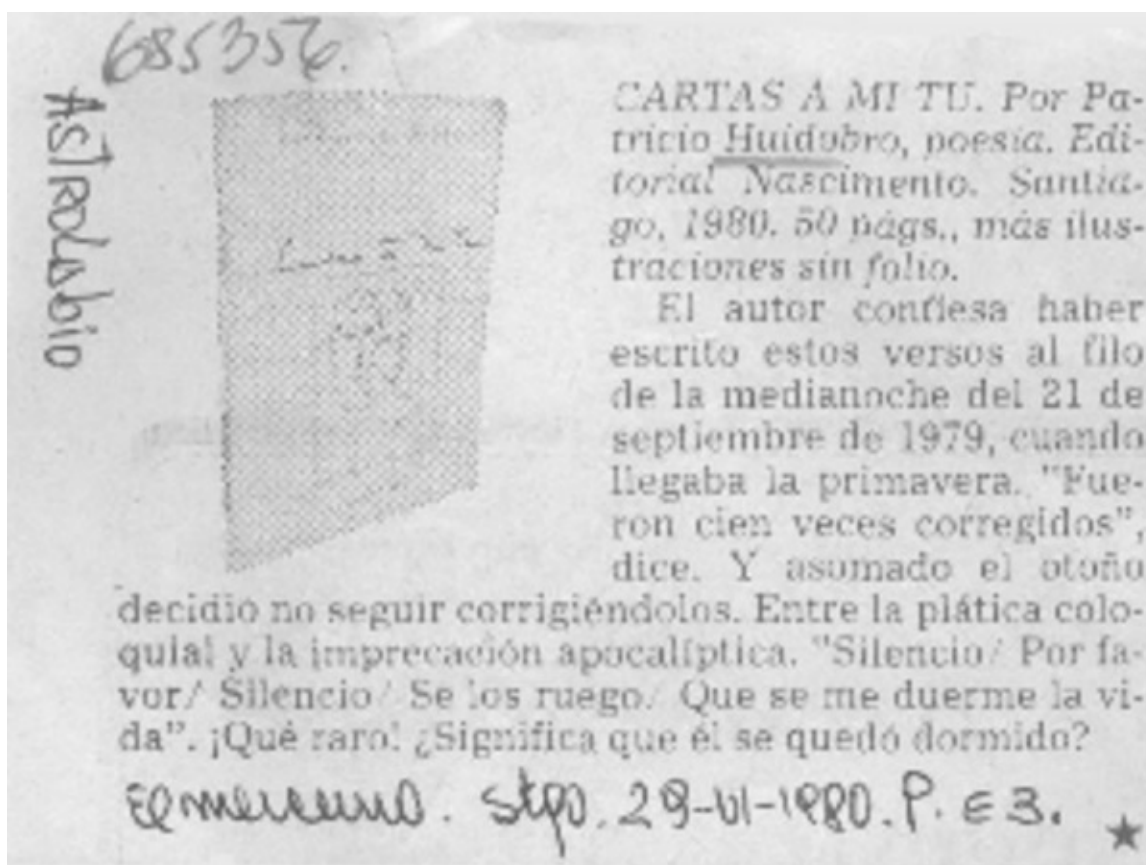 685356.
ASTROLABIO
CARTAS A MI TU. Por Pa-
tricio Huidobro, poesía. Edi-
torial Nascimento. Santia-
go, 1980. 50 págs., más ilus-
traciones sin folio.
El autor confiesa haber
escrito estos versos al filo
de la medianoche del 21 de
septiembre de 1979, cuando
llegaba la primavera. "Fue-
ron cien veces corregidos",
dice. Y asumado el otoño
decidió no seguir corrigiéndolos. Entre la plática colo-
quial y la imprecación apocalíptica. "Silencio/ Por fa-
vor/ Silencio/ Se los ruego/ Que se me duerme la vi-
da". ¡Qué raro! ¿Significa que él se quedó dormido?
El mercurio. stgo. 29-VI-1980. P. E 3.